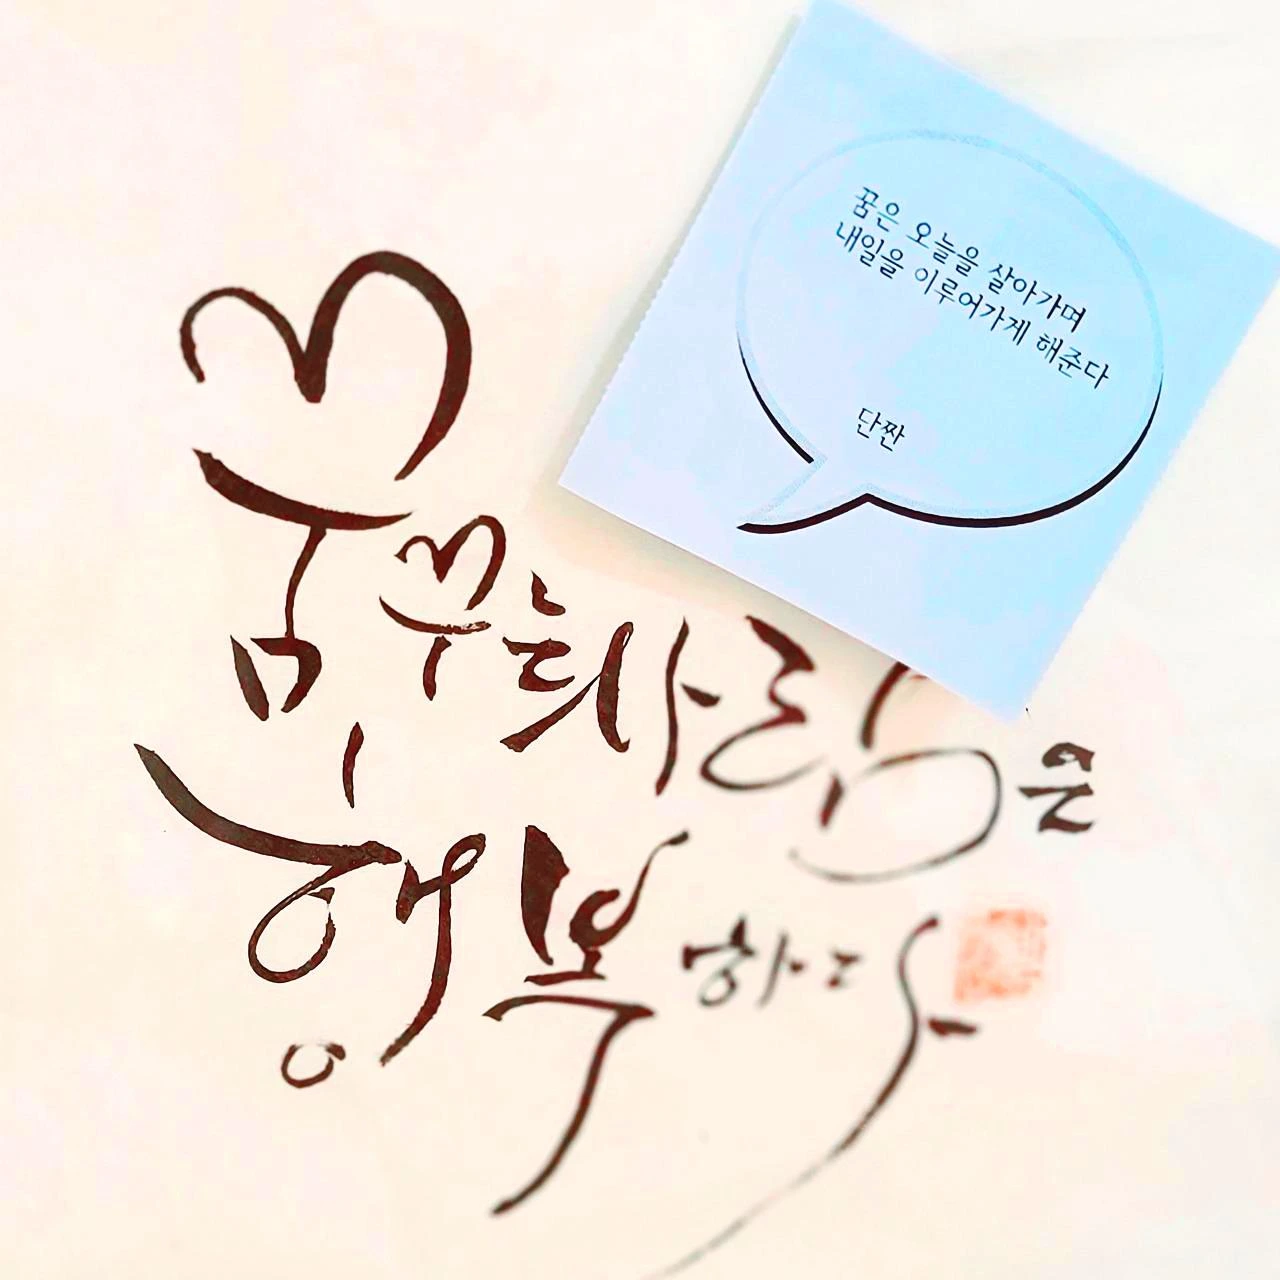 꿈은 오늘을 살아가며
내일을 이루어가게 해준다
단짠
꿈꾸는 사람은
행복하다